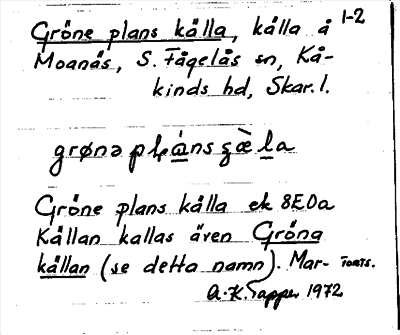 Gröne plans källa, källa å 1-2
Moanäs, S. Fågelås sn, Kå-
kinds hd, Skar. l.
grønə plạ̀ns ʓæ̀la
Gröne plans källa ek 8E0a
Källan kallas även Gröna
källan (se detta namn). Mar- Tomts.
A. K. Tapper 1972